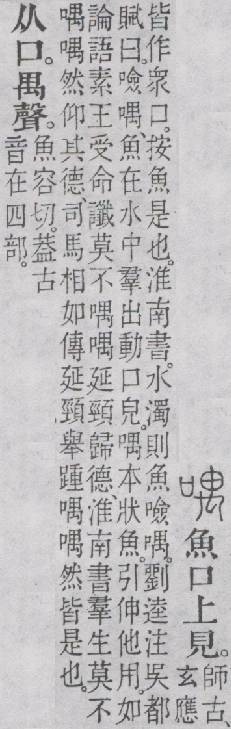 喁魚口上見。師古、玄應
皆作衆口。按魚是也。淮南書。水濁則魚噞喁。劉逵注吳都
賦曰。噞喁、魚在水中羣出動口皃。喁本狀魚。引伸他用。如
論語素王受命讖莫不喁喁延頸歸德、淮南書羣生莫不
喁喁然仰其德、司馬相如傳延頸舉踵喁喁然皆是也。
从口。禺聲。魚容切。葢古
音在四部。